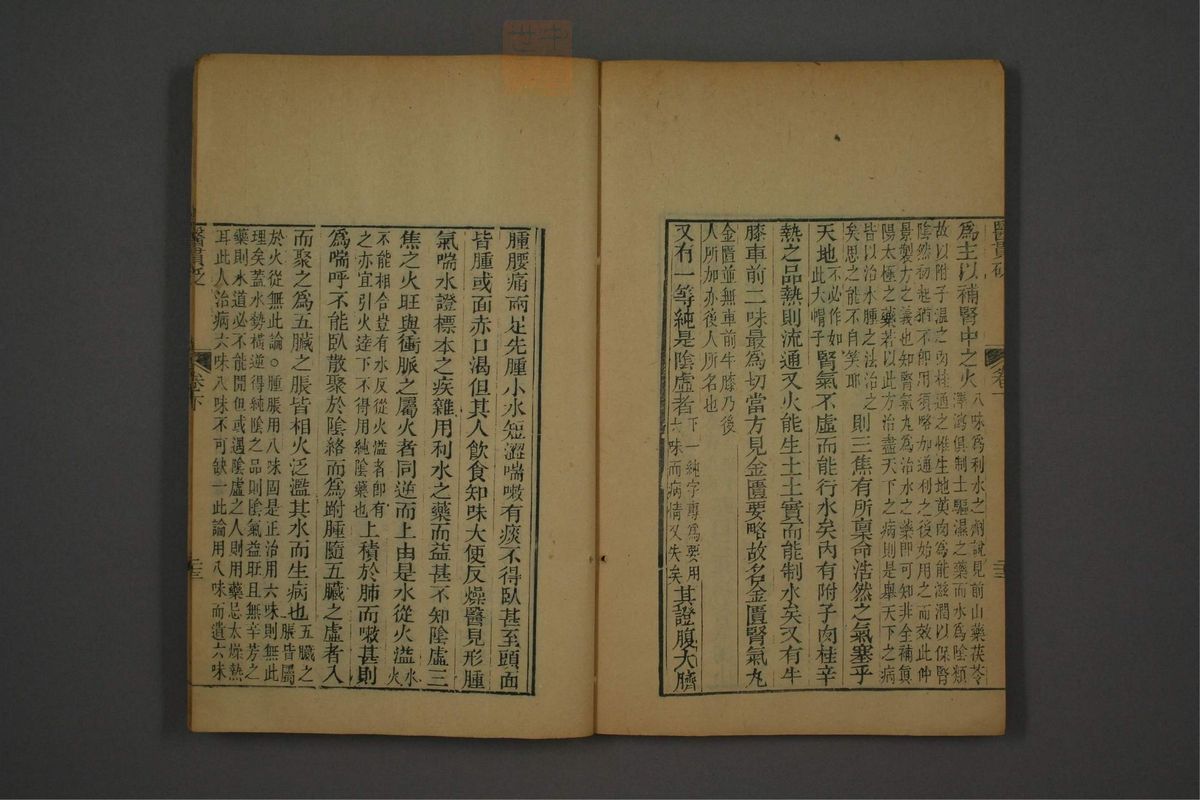 醫貫砭
卷下
為主以補腎中之火八味為利水之劑說見前山藥茯苓
澤瀉俱制土驅濕之藥而水為陰類
故以附子溫之肉桂通之惟生地萸肉為能滋潤以保腎
陰然初起猶不卽用須略加通利之後始用之而效此仲
景製方之義也知腎氣丸為治水之藥即可知非全補真
陽太極之藥若以此方治盡天下之病則是舉天下之病
皆以治水腫之法治之
矣思之能不自笑耶則三焦有所稟命浩然之氣塞乎
天地不必作如
此大帽子腎氣不虛而能行水矣內有附子肉桂辛
熱之品熱則流通又火能生土土實而能制水矣又有牛
膝車前二味最為切當方見金匱要略故名金匱腎氣丸
金匱並無車前牛膝乃後
人所加亦後人所名也
又有一等純是陰虛者下一純字專為要用
六味而病情又失矣其證腹大臍
腫腰痛兩足先腫小水短澀喘嗽有痰不得臥甚至頭面
皆腫或面赤口渴但其人飲食知味大便反燥醫見形腫
氣喘水證標本之疾雜用利水之藥而益甚不知陰虛三
焦之火旺與衝脈之屬火者同逆而上由是水從火溢水
火
不能相合豈有水反從火溢者卽有
之亦宜引火達下不得用純陰藥也上積於肺而嗽甚則
為喘呼不能臥散聚於陰絡而為跗腫隨五臟之虛者入
而聚之為五臟之脹皆相火泛濫其水而生病也五臟之
脹皆屬
於火從無此論○腫脹用八味固是正治用六味則無此
理矣蓋水勢橫逆得純陰之品則陰氣益旺且無辛芳之
藥則水道必不能開但或遇陰虛之人則用藥忌太燥熱
耳此人治病六味八味不可缺一此論用八味而遺六味
醫貫砭
卷下
三